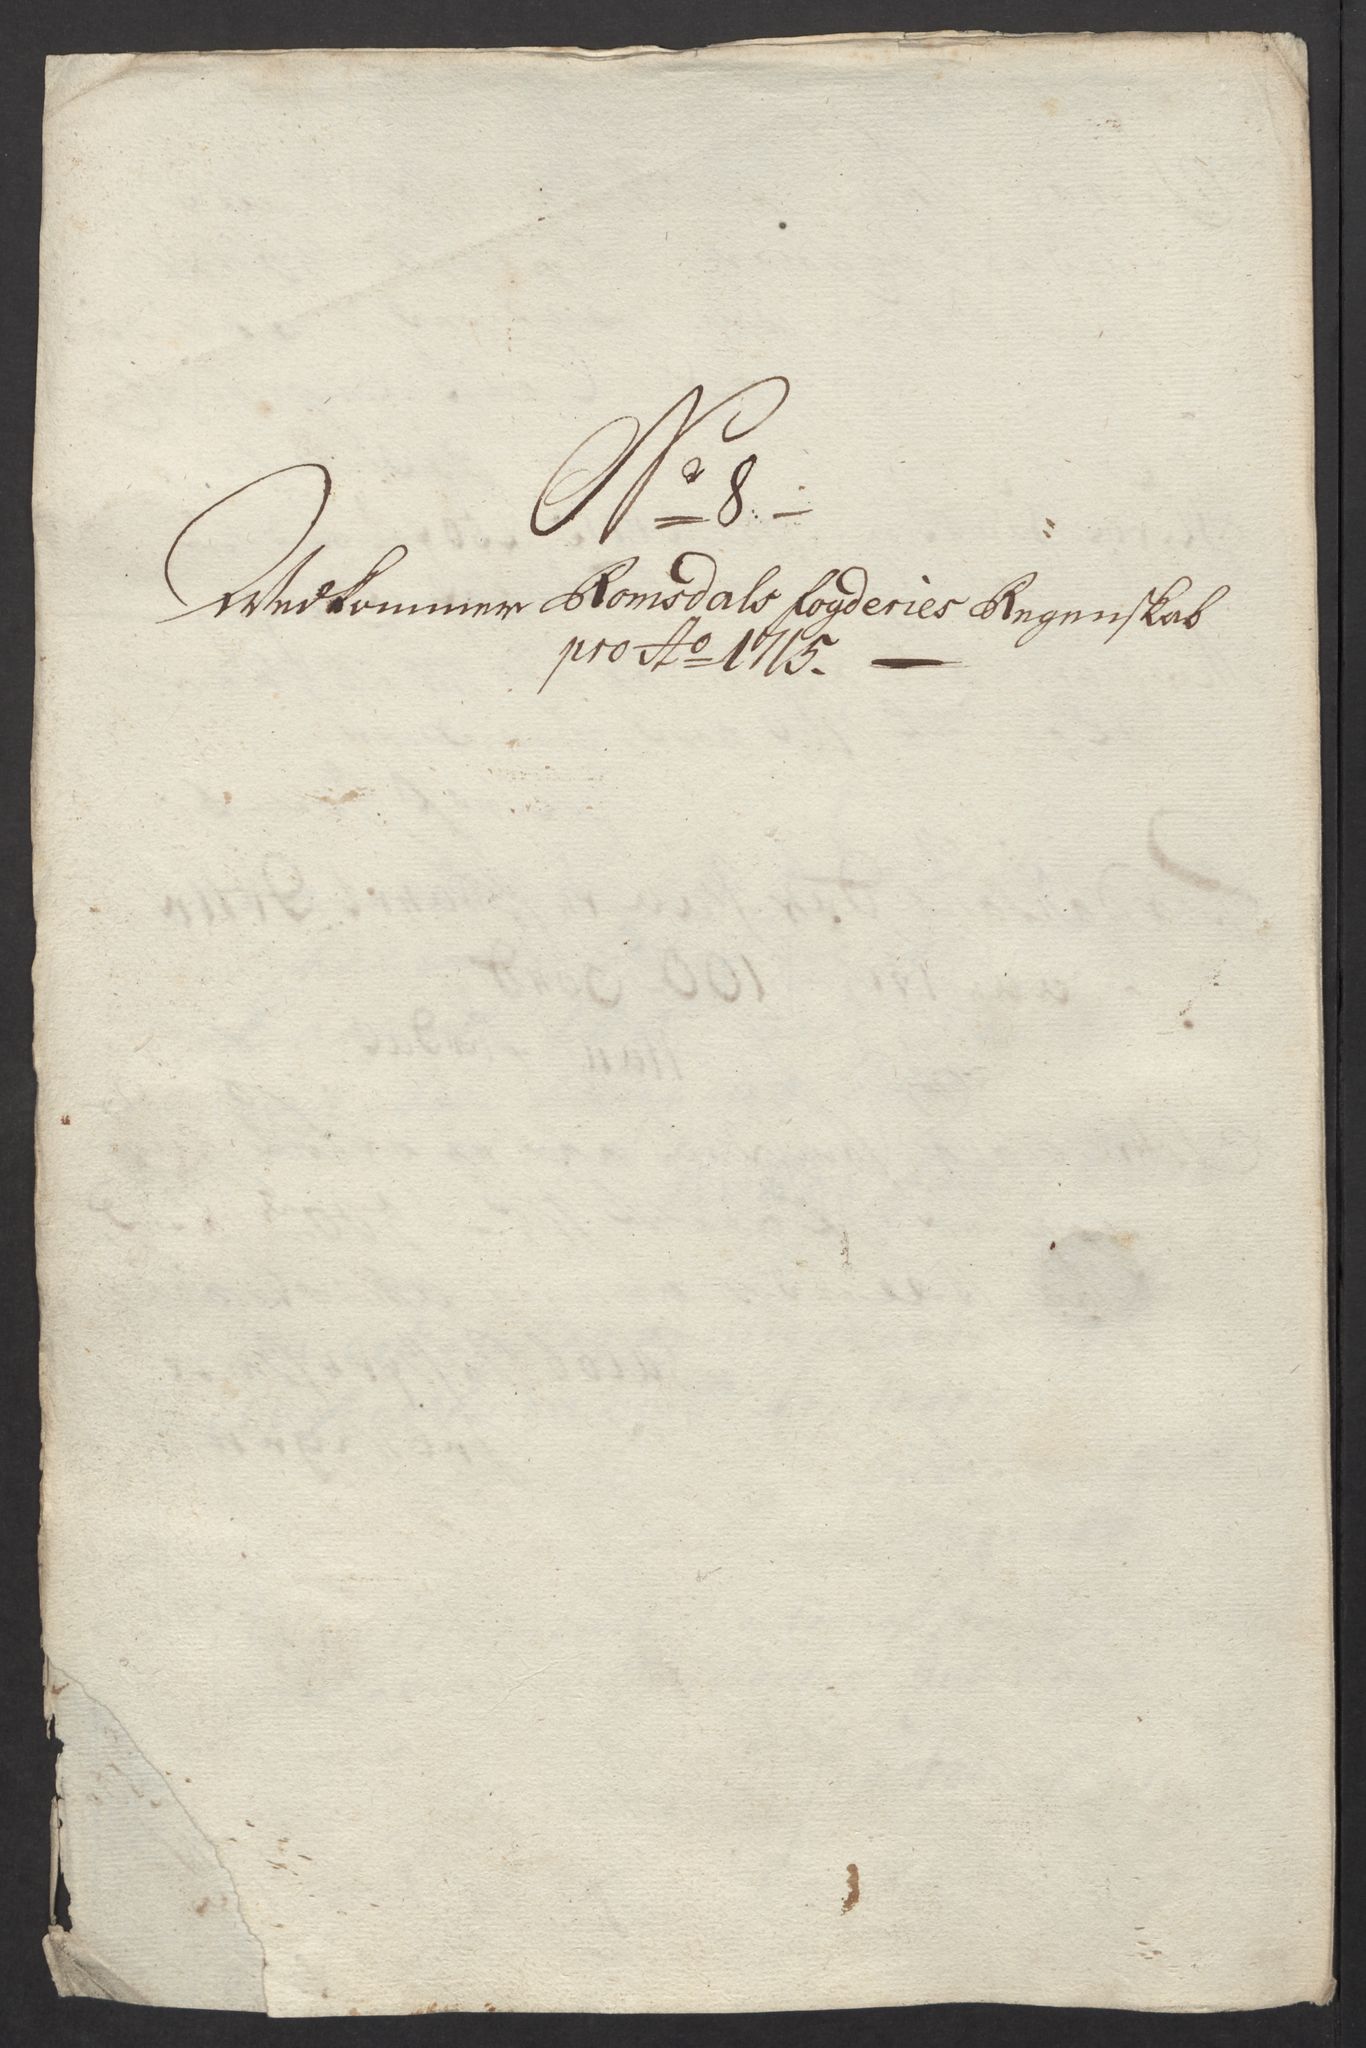 No 8.
Vedkommer Romsdals fogderies Regenskab
pro Ao 1715.